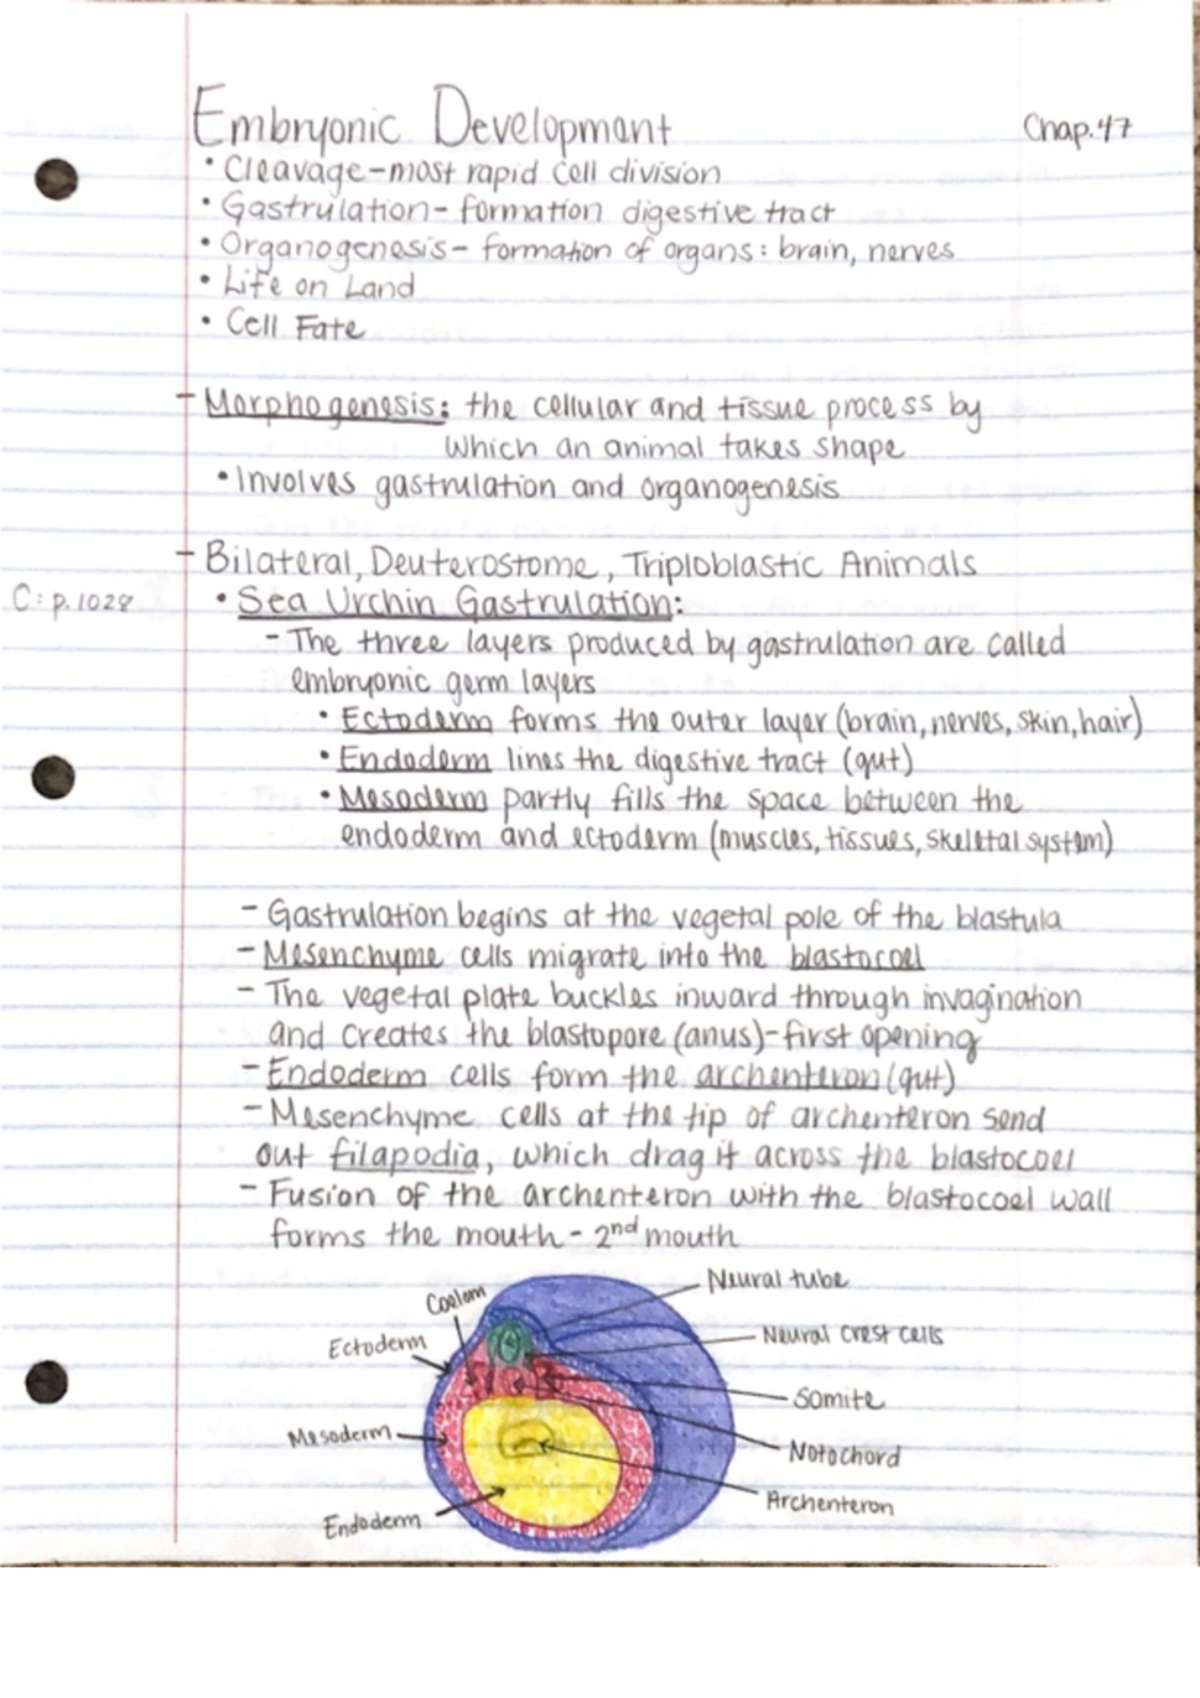 Embryonic Development
Chap. 47
• Cleavage - most rapid cell division
• Gastrulation - formation digestive tract
• Organogenesis - formation of organs: brain, nerves
• Life on Land
• Cell Fate
- Morphogenesis: the cellular and tissue process by
which an animal takes shape
• Involves gastrulation and organogenesis
- Bilateral, Deuterostome, Triploblastic Animals
C: p. 1028
• Sea Urchin Gastrulation:
- The three layers produced by gastrulation are called
embryonic germ layers
• Ectoderm forms the outer layer (brain, nerves, skin, hair)
• Endoderm lines the digestive tract (gut)
• Mesoderm partly fills the space between the
endoderm and ectoderm (muscles, tissues, skeletal system)
- Gastrulation begins at the vegetal pole of the blastula
- Mesenchyme cells migrate into the blastocoel
- The vegetal plate buckles inward through invagination
and creates the blastopore (anus) - first opening
- Endoderm cells form the archenteron (gut)
- Mesenchyme cells at the tip of archenteron send
out filapodia, which drag it across the blastocoel
- Fusion of the archenteron with the blastocoel wall
forms the mouth - 2nd mouth
Neural tube
Coelom
Neural crest cells
Ectoderm
Somite
Mesoderm
Notochord
Archenteron
Endoderm